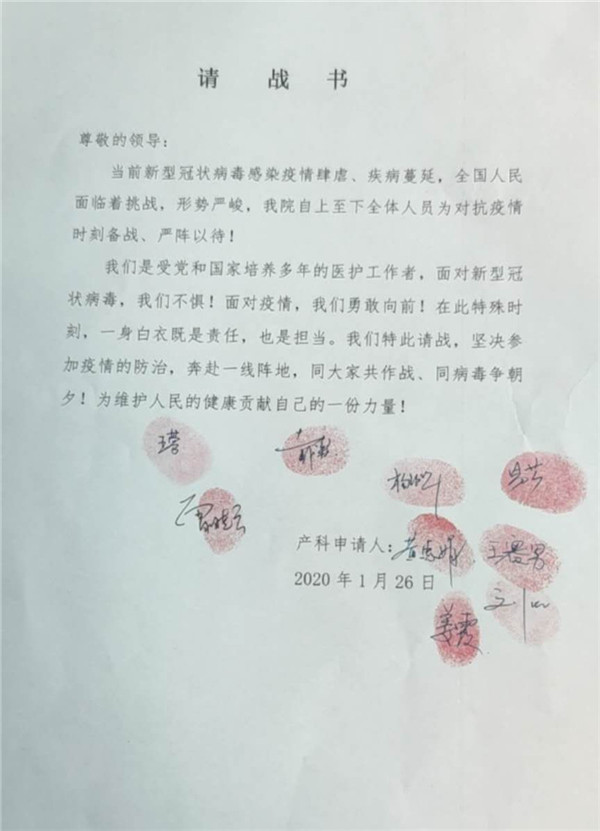 请 战 书
尊敬的领导：
当前新型冠状病毒感染疫情肆虐、疾病蔓延，全国人民
面临着挑战，形势严峻，我院自上至下全体人员为对抗疫情
时刻备战、严阵以待！
我们是受党和国家培养多年的医护工作者，面对新型冠
状病毒，我们不惧！面对疫情，我们勇敢向前！在此特殊时
刻，一身白衣既是责任，也是担当。我们特此请战，坚决参
加疫情的防治，奔赴一线阵地，同大家共作战、同病毒争朝
夕！为维护人民的健康贡献自己的一份力量！
产科申请人：
2020 年 1 月 26 日
姜霞